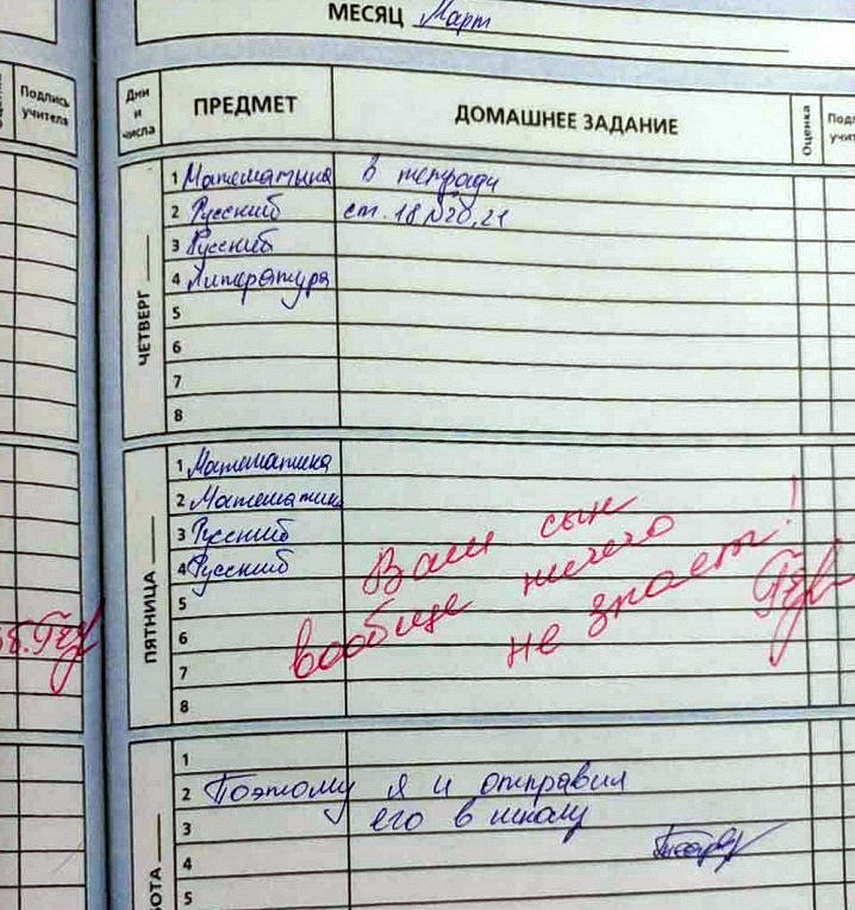 МЕСЯЦ Март
Подпись учителя
Дни и числа
ПРЕДМЕТ
ДОМАШНЕЕ ЗАДАНИЕ
Оценка
ЧЕТВЕРГ
1 Математика в тетради
2 Русский ст. 18 №20,21
3 Русский
4 Литература
5
6
7
8
ПЯТНИЦА
1 Математика
2 Математика
3 Русский
4 Русский
5
6
7
8
Ваш сын
вообще ничего
не знает!
1
2 Поэтому я и отправил
3 его в школу
4
5